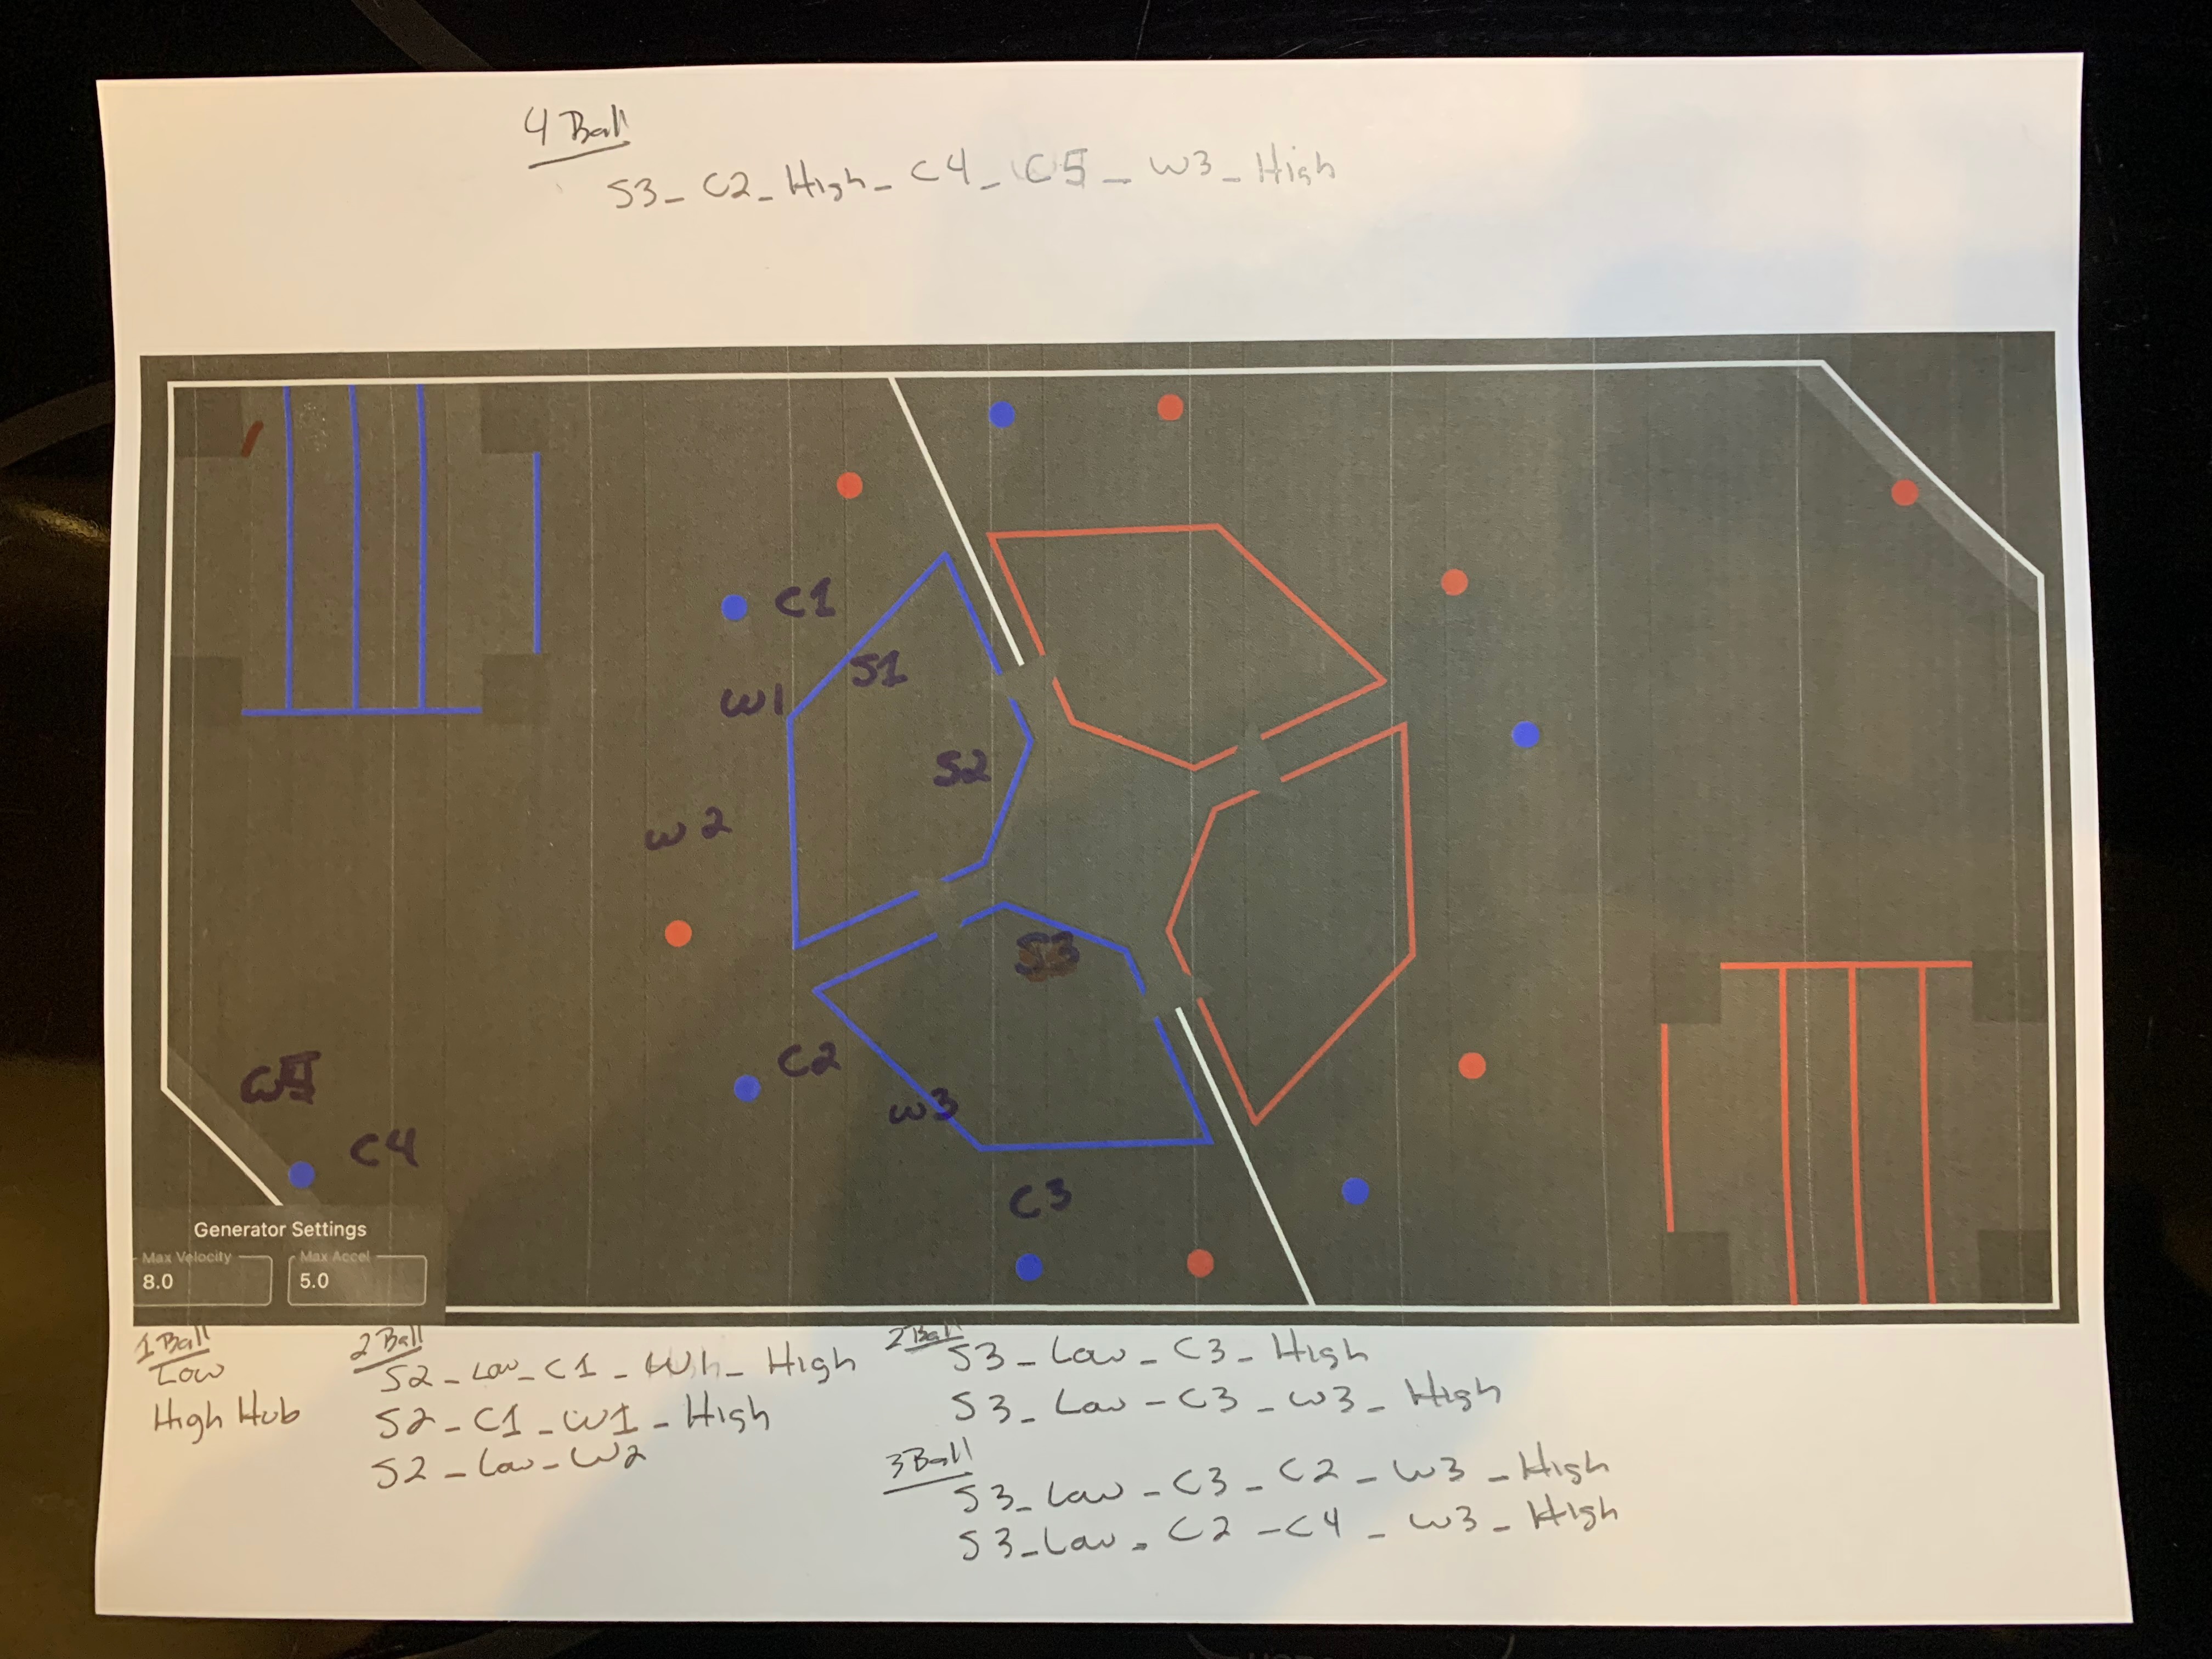 4 Ball
S3_C2_High_C4_C5_W3_High
C1
S1
W1
S2
W2
S3
C2
W3
C4
C3
Generator Settings
Max Velocity
8.0
Max Accel
5.0
1 Ball
Low
High Hub
2 Ball
S2_Low_C1_W1_High
S2_C1_W1_High
S2_Low_W2
2 Ball
S3_Low_C3_High
S3_Low_C3_W3_High
3 Ball
S3_Low_C3_C2_W3_High
S3_Low_C2_C4_W3_High